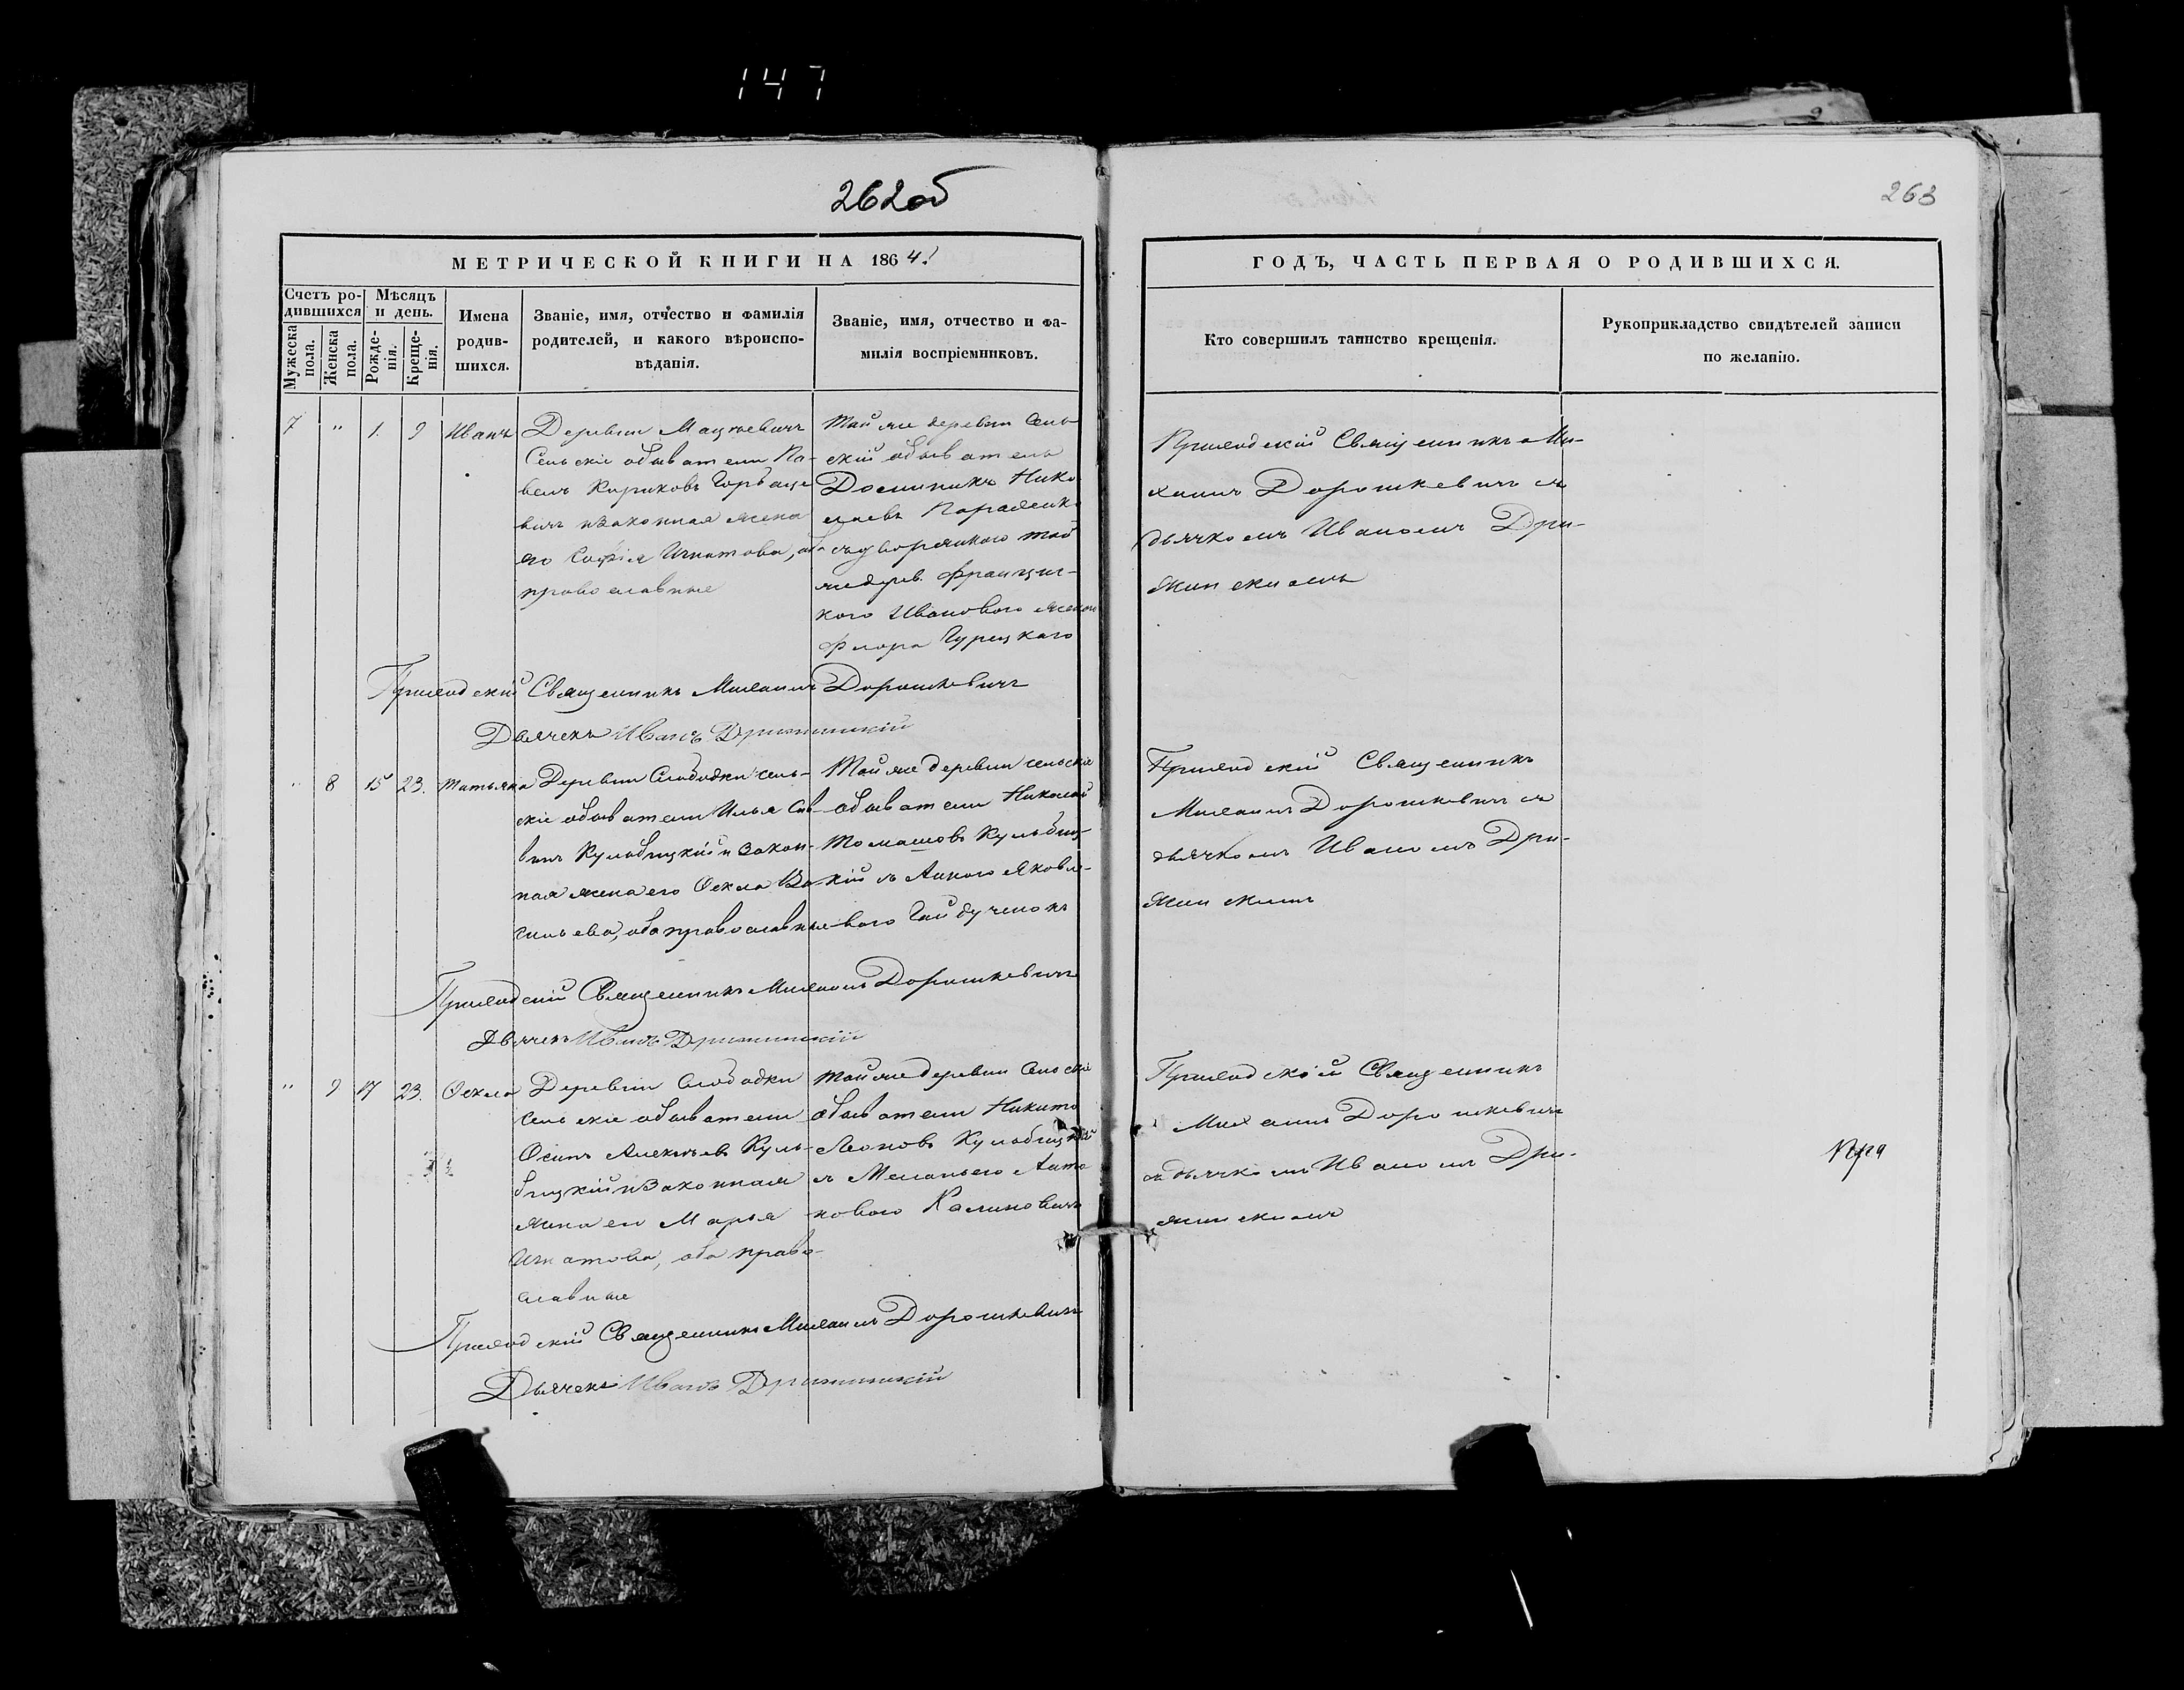 147
262об
263
МЕТРИЧЕСКОЙ КНИГИ НА 1864.
ГОДЪ, ЧАСТЬ ПЕРВАЯ О РОДИВШИХСЯ.
Счетъ ро-
дившихся
Мужеска
пола.
Женска
пола.
Мѣсяцъ
и день.
Рожде-
нія.
Креще-
нія.
Имена
родив-
шихся.
Званіе, имя, отчество и фамилія
родителей, и какого вѣроиспо-
вѣданія.
Званіе, имя, отчество и фа-
милія воспріемниковъ.
Кто совершилъ таинство крещенія.
Рукоприкладство свидѣтелей записи
по желанію.
7 " 1. 9 Иванъ
Деревни Мацкевичъ
Сельскіе обыватели Па-
велъ Кириковъ
вичъ и законная жена
его Софія Игнатова, оба
православные
Той же деревни Сель-
скій обыватель
Доминикъ Нико
лаевъ
съ дворянкою той
же дерев. Францис-
кого Ивановою женою
Флора Гурецкаго
Приходскій Священникъ Ми-
хаилъ Дорошкевичъ съ
дьячкомъ Иваномъ Дри-
жинскимъ
Приходскій Священникъ Михаилъ Дорошкевичъ
Дьячекъ Иванъ
" 8 15 23. Татьяна
Деревни Слободки сель-
скіе обыватели Илья Сав-
винъ Кульбицкій и закон-
ная жена его Ѳекла Ва-
сильева, оба православные
Той же деревни сельскіе
обыватели Николай
Томашовъ Кульбиц-
кій съ Анною Яковле-
вою Гайдученокъ
Приходскій Священникъ
Михаилъ Дорошкевичъ съ
дьячкомъ Иваномъ Дри-
жинскимъ
Приходскій Священникъ Михаилъ Дорошкевичъ
Дьячекъ Иванъ
" 9 17 23. Ѳекла
Деревни Слободки
сельскіе обыватели
Осипъ Алексѣевъ Куль-
бицкій и законная
жена его Марья
Игнатова, оба право-
славные
Той же деревни Сельскіе
обыватели Никита
Леоновъ Кульбицкій
съ Меланьею Анто
новою Калиновичъ
Приходской Священникъ
Михаилъ Дорошкевичъ
съ дьячкомъ Иваномъ Дри-
жинскимъ
Приходскій Священникъ Михаилъ Дорошкевичъ
Дьячекъ Иванъ